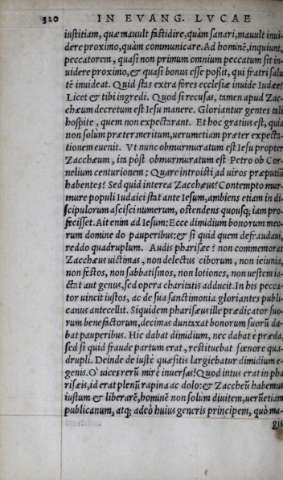 320 IN EVANG. LVCAE
iustitiam, quæ mauult fastidire, quàm sanari, mauult inui-
dere proximo, quàm communicare. Ad hominẽ, inquiunt,
peccatorem, quasi non primum omnium peccatum sit in-
uidere proximo, & quasi bonus esse possit, qui fratri salu
tẽ inuideat. Quid stas extra fores ecclesiæ inuide Iudæe?
Licet & tibi ingredi. Quod si recusas, tamen apud Zac-
chæum decretum est Iesu manere. Gloriantur gentes tali
hospite, quem non expectarant. Et hoc gratius est, quia
non solum præter meritum, uerumetiam præter expecta-
tionem euenit. Vt nunc obmurmuratum est Iesu propter
Zacchæum, ita pòst obmurmuratum est Petro ob Cor-
nelium centurionem: Quare introisti ad uiros præputiũ
habentes? Sed quid interea Zacchæus? Contempto mur-
mure populi Iudaici stat ante Iesum, ambiens etiam in di-
scipulorum ascisci numerum, ostendens quousq; iam pro-
fecisset. Ait enim ad Iesum: Ecce dimidium bonorum meo-
rum domine do pauperibus, & si quid quem defraudaui,
reddo quadruplum. Audis pharisæe? non commemorat
Zachæus uictimas, non delectus ciborum, non ieiunia,
non festos, non sabbatismos, non lotiones, non uestem ia-
ctãt aut genus, sed opera charitatis adducit. In his pecca-
tor uincit iustos, ac de sua sanctimonia gloriantes publi-
canus antecellit. Siquidem pharisæus ille prædicator suo-
rum benefactorum, decimas duntaxat bonorum suorũ da-
bat pauperibus. Hic dabat dimidium, nec dabat è præda,
sed si quid fraude partum erat, restituebat fœnore qua-
drupli. Deinde de iustè quæsitis largiebatur dimidium e-
genis. O uices rerũ mirè inuersas! Quod intus erat in pha
risæis, id erat plenũ rapina ac dolo: & Zachæũ habemus
iustum & liberalẽ, hominẽ non solùm diuitem, uerũetiam
publicanum, atq; adeò huius generis principem, quò ma-
gis